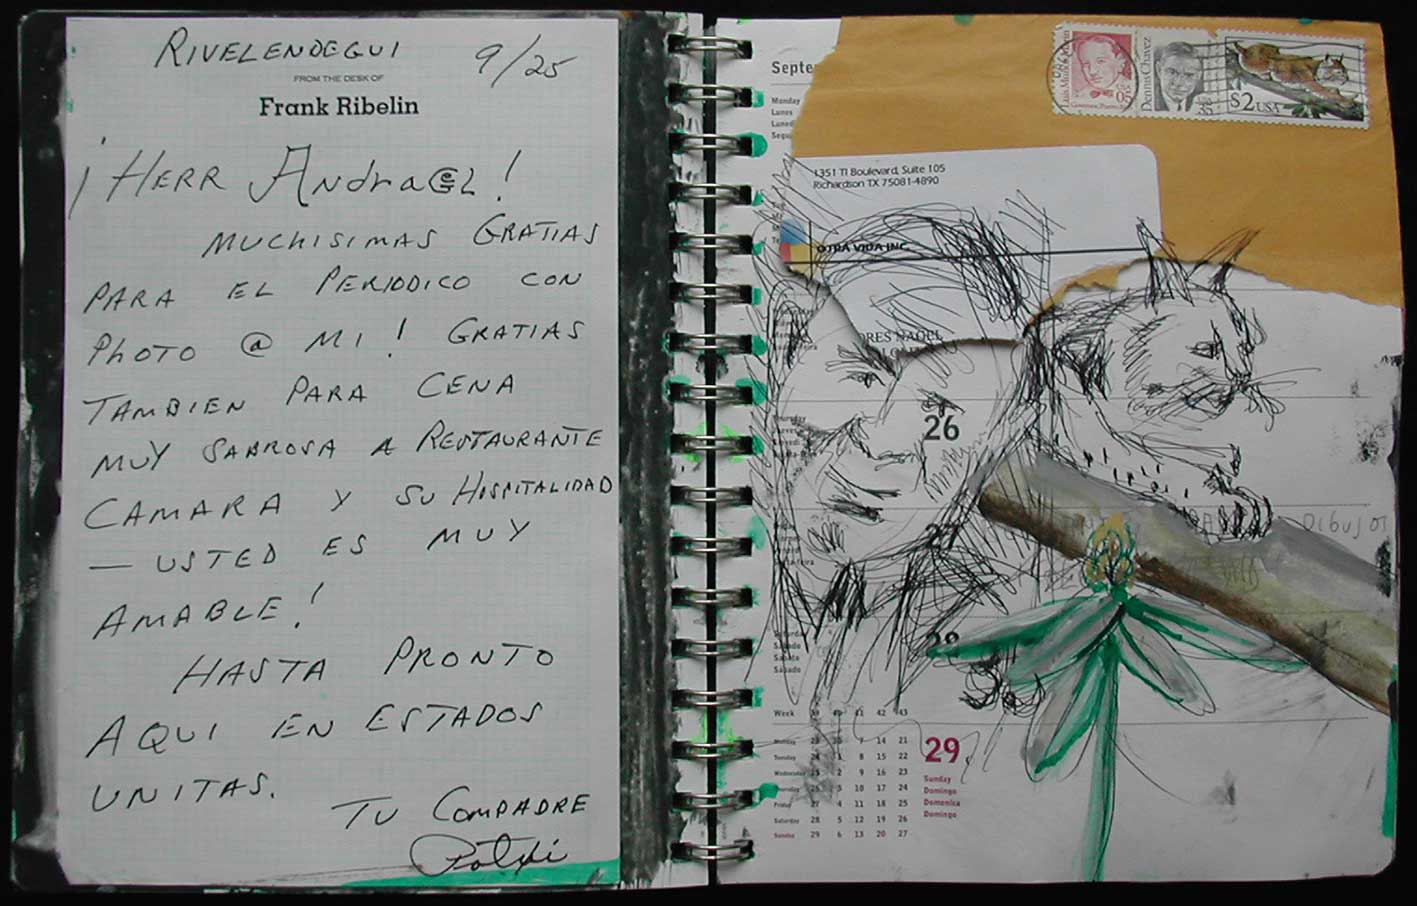 RIVELENDEGUI
9/25
FROM THE DESK OF
Frank Ribelin
¡HERR Andra@L!
MUCHISIMAS GRATIAS
PARA EL PERIODICO CON
PHOTO @ MI! GRATIAS
TAMBIEN PARA CENA
MUY SABROSA A RESTAURANTE
CAMARA Y SU HOSPITALIDAD
— USTED ES MUY
AMABLE!
HASTA PRONTO
AQUI EN ESTADOS
UNITAS.
TU COMPADRE
Septe
Monday
Lunes
Lunedì
Luis Muñoz Marin
Governor, Puerto Rico
05
Dennis Chavez
USA
35
$2 USA
1351 TI Boulevard, Suite 105
Richardson TX 75081-4890
OTRA VIDA INC.
RES NAGEL
26
27
28
DIBUJOS
Saturday
Sábado
Sabato
Sábado
Week 39 40 41 42 43
Monday 23 30 7 14 21
Tuesday 24 1 8 15 22
Wednesday 25 2 9 16 23
Thursday 26 3 10 17 24
Friday 27 4 11 18 25
Saturday 28 5 12 19 26
Sunday 29 6 13 20 27
29
Sunday
Domingo
Domenica
Domingo